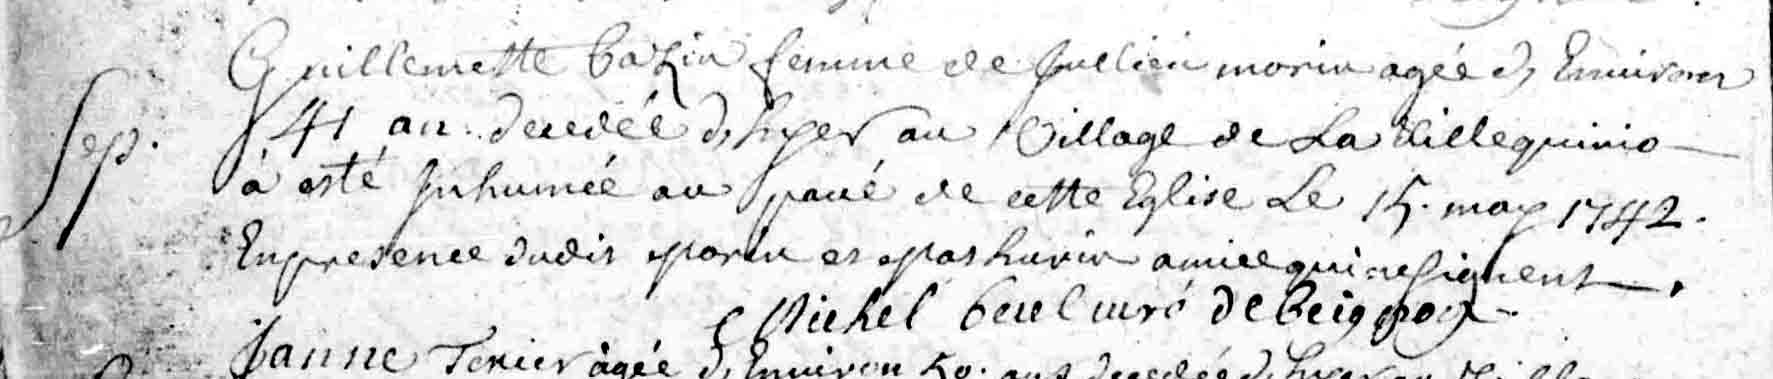 Guillemette bazin femme de Jullien morin agée d'Environ
Sep. 41 an. decedée d'hyer au Village de La Villequinio
à esté Inhumée au pavé de cette Eglise Le 15. may 1742.
En presence dudit morin et mathurin amice qui ne signent.
Michel curé de beignon
Janne Terier âgée d'Environ 50. ans decedée d'hyer au